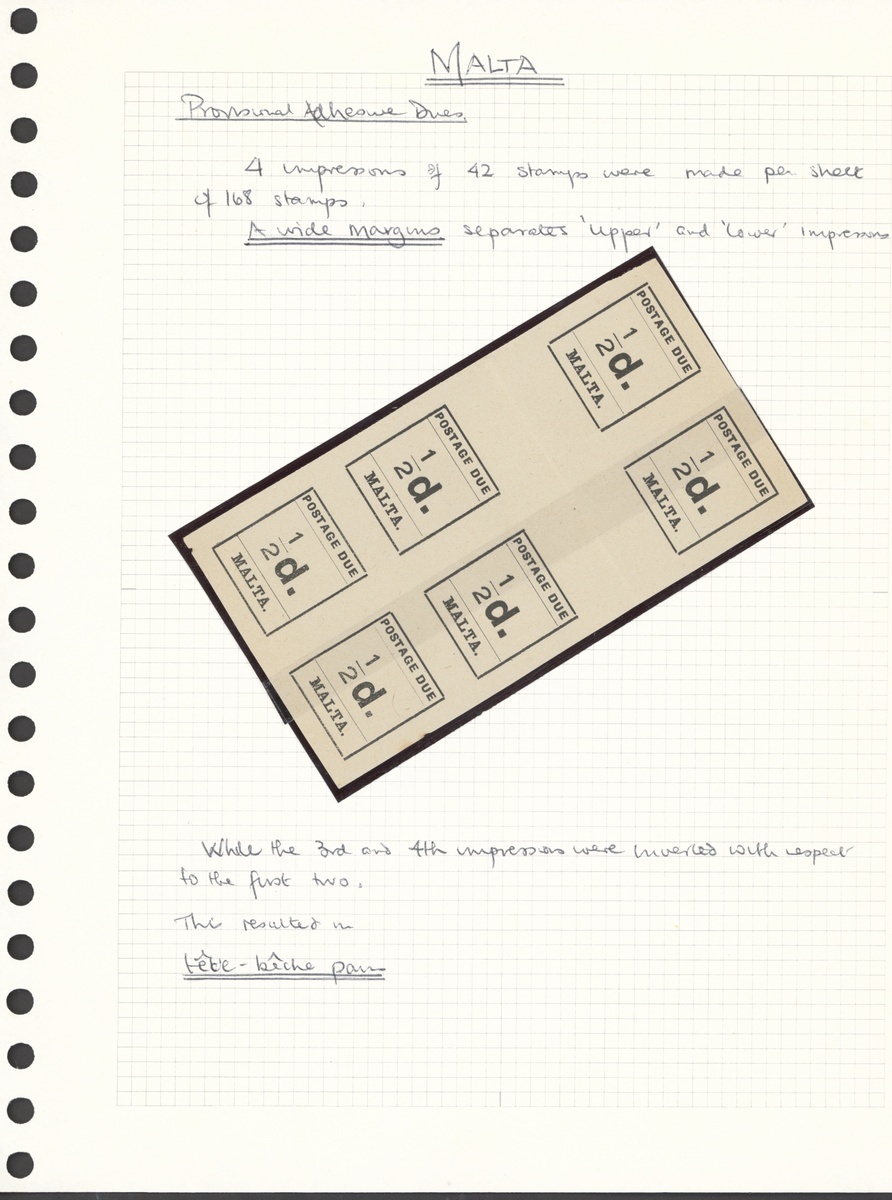 MALTA
Provisional Adhesive Dues.
4 impressions of 42 stamps were made per sheet
of 168 stamps.
A wide margins separates 'upper' and 'lower' impressions
POSTAGE DUE
1/2d.
MALTA.
POSTAGE DUE
1/2d.
MALTA.
POSTAGE DUE
1/2d.
MALTA.
POSTAGE DUE
1/2d.
MALTA.
POSTAGE DUE
1/2d.
MALTA.
POSTAGE DUE
1/2d.
MALTA.
While the 3rd and 4th impressions were inverted with respect
to the first two.
This resulted in
tête-bêche pairs